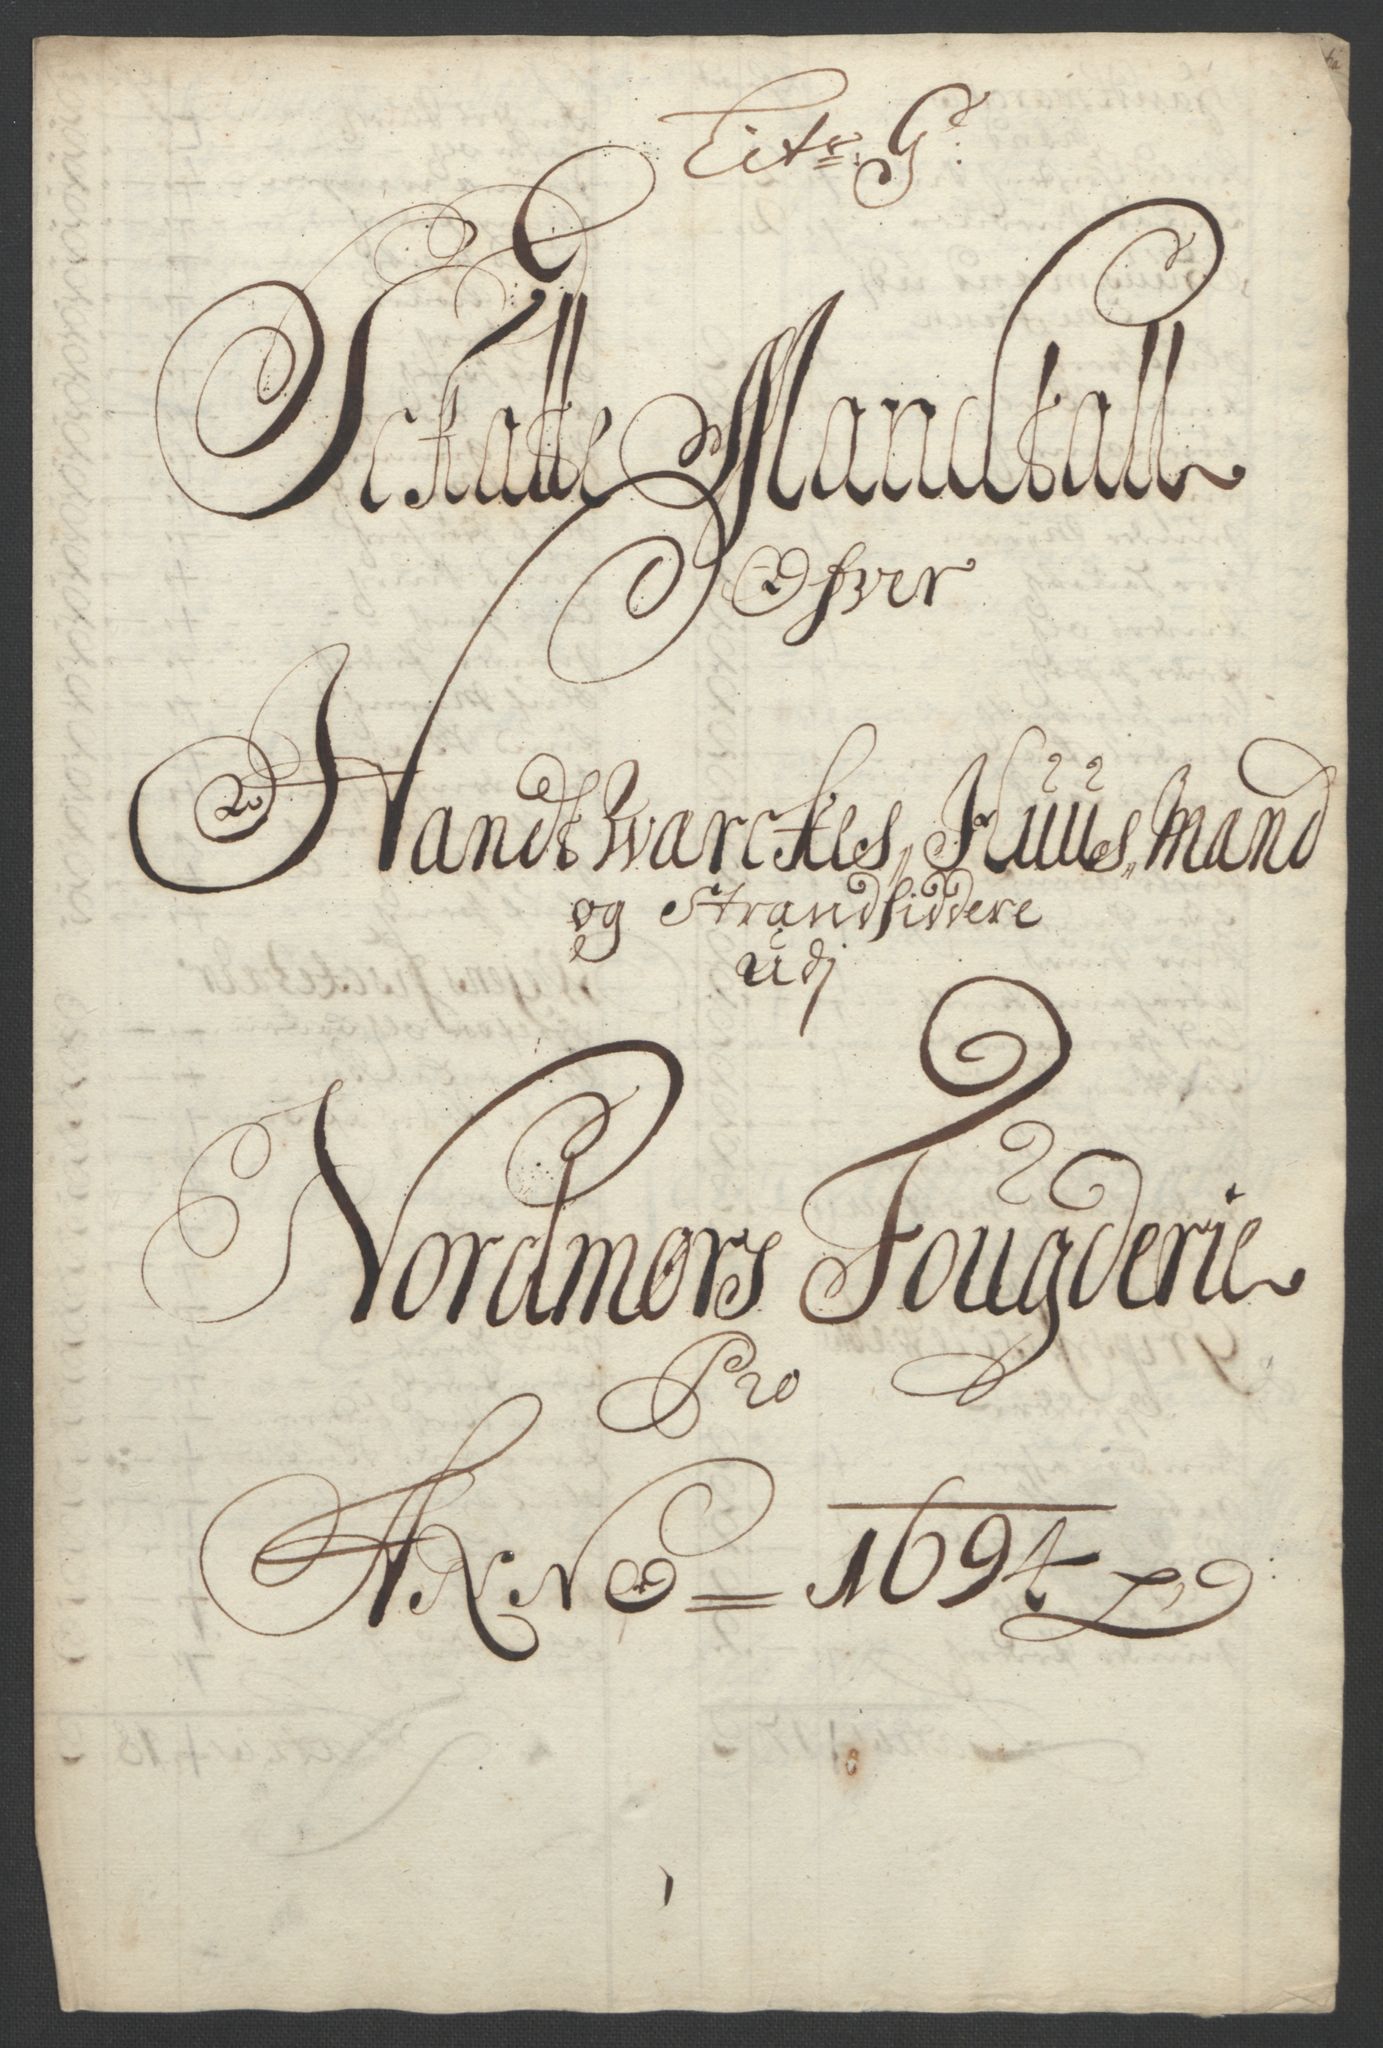 Litr. G:
Schatte Mandtall
Ofver
Handtwarckes, Huus, Mand
og Strandsiddere
udj
Nordmørs Fougderie
Pro
Anno = 1694